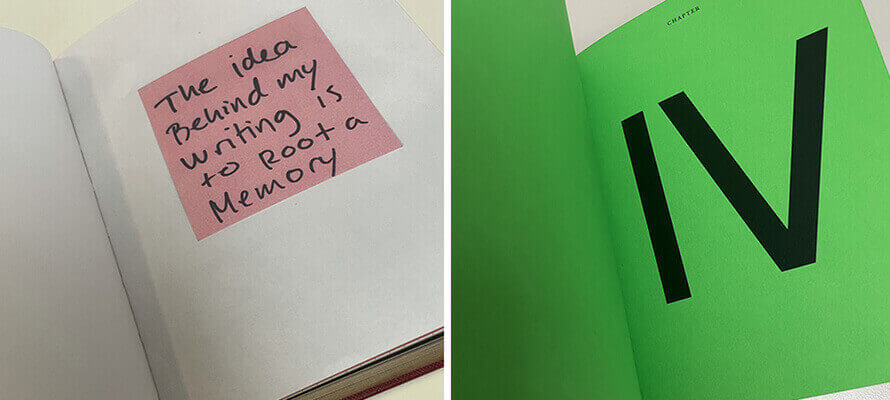 The idea
Behind my
writing is
to Root a
Memory
CHAPTER
IV